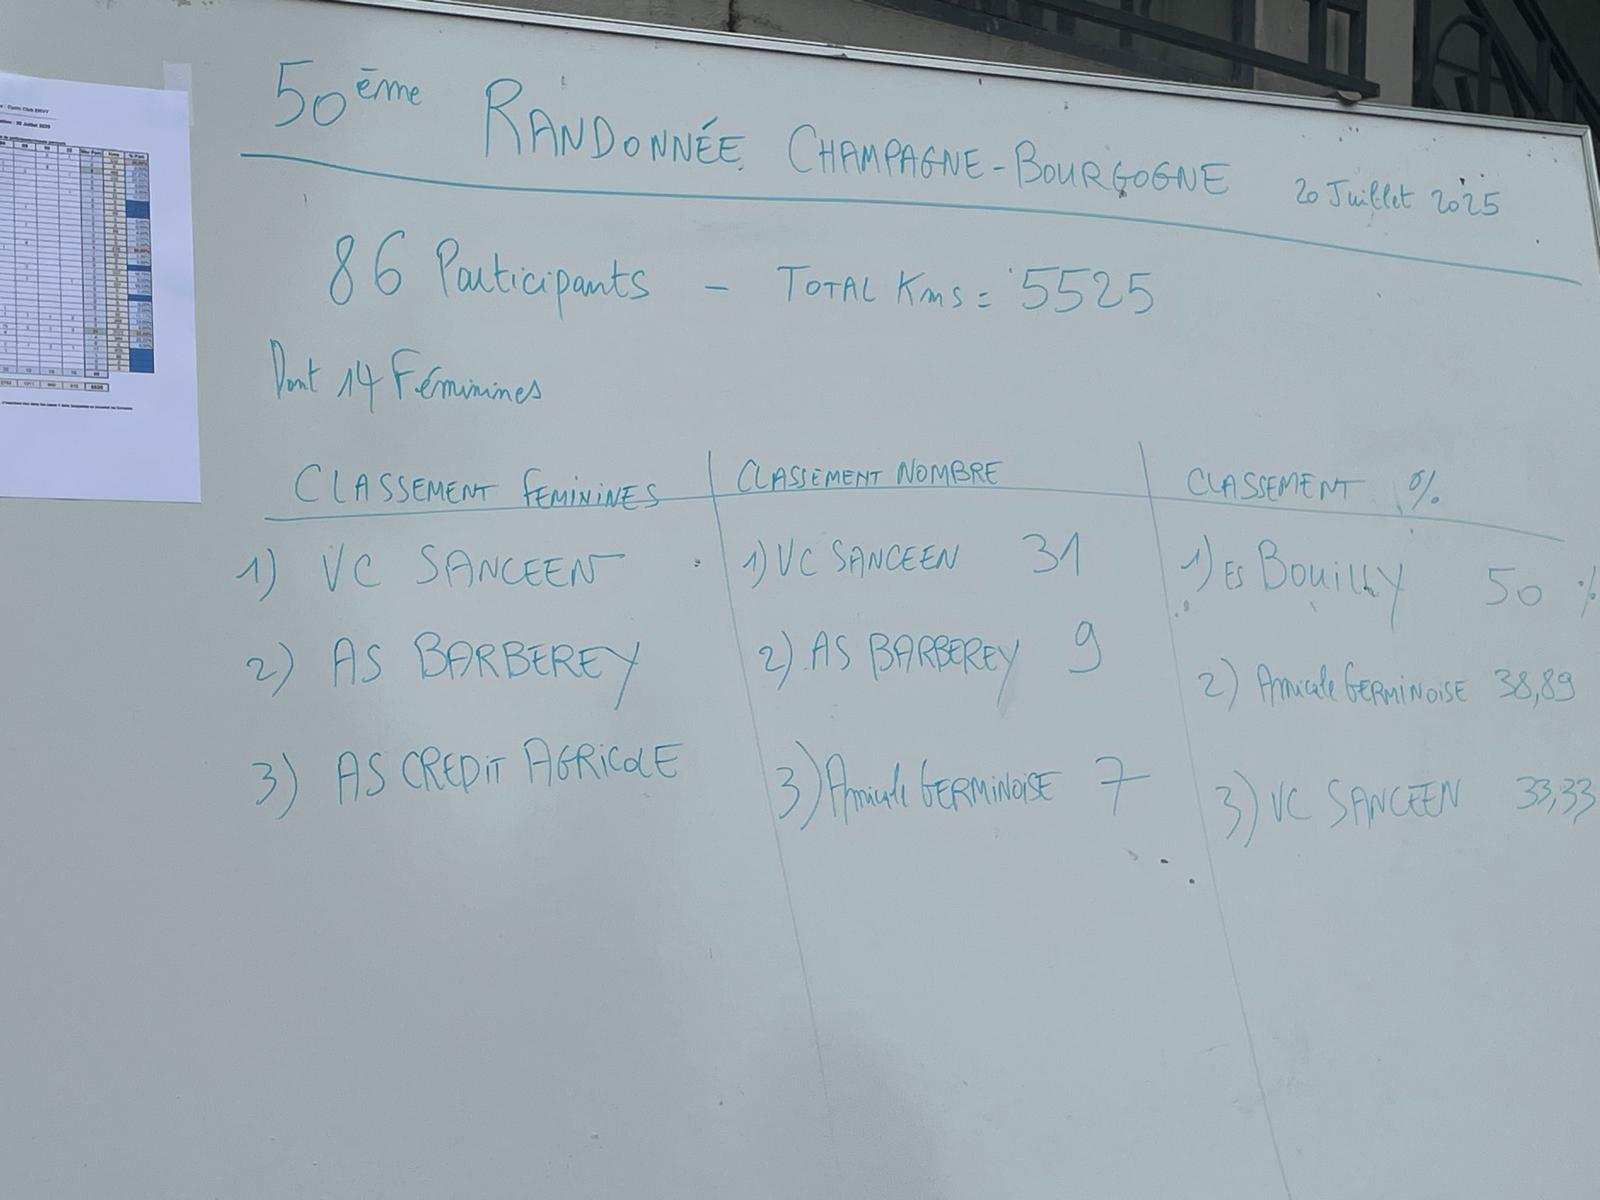 50ème RANDONNÉE CHAMPAGNE-BOURGOGNE 20 Juillet 2025
86 Participants - TOTAL Kms = 5525
Dont 14 Féminines
CLASSEMENT FEMININES
1) VC SANCEEN
2) AS BARBEREY
3) AS CREDIT AGRICOLE
CLASSEMENT NOMBRE
1) VC SANCEEN 31
2) AS BARBEREY 9
3) Amicale GERMINOISE 7
CLASSEMENT %
1) ES BOUILLY 50 %
2) Amicale GERMINOISE 38,89
3) VC SANCEEN 33,33